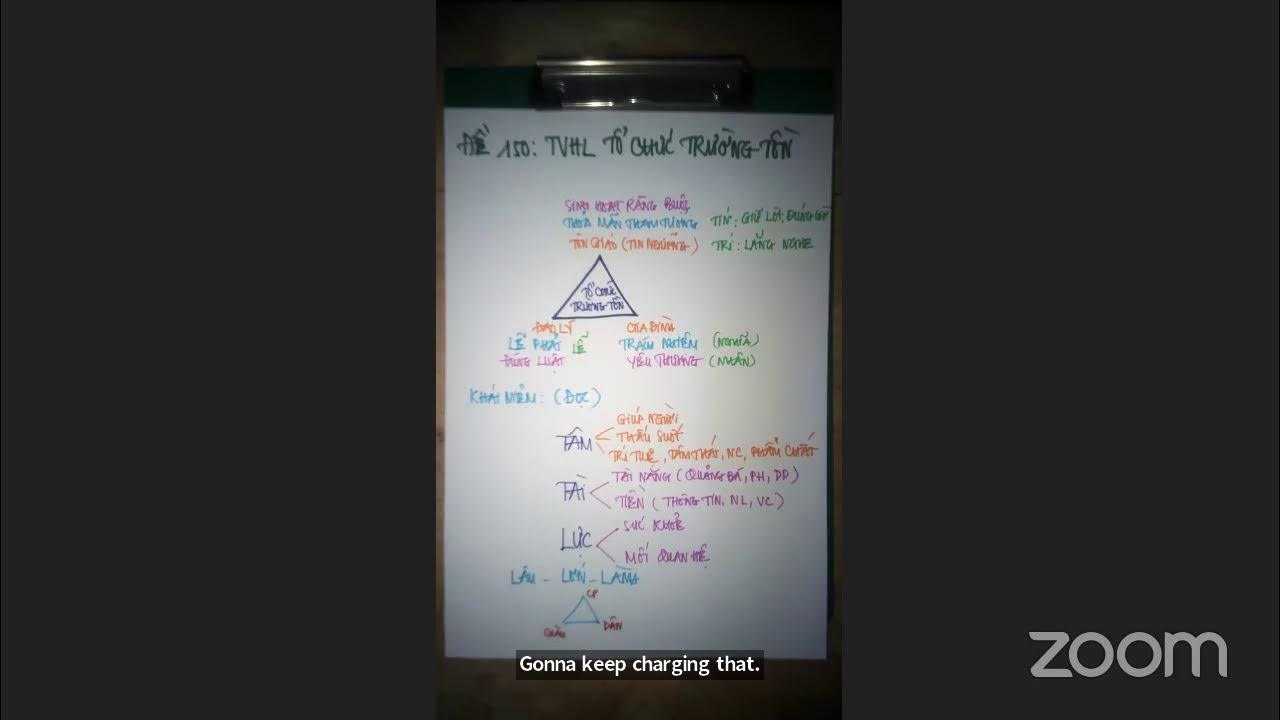 ĐỀ 150: TVHL TỔ CHỨC TRƯỜNG TỒN
SINH HOẠT RÀNG BUỘC
THOẢ MÃN THAM TƯỞNG
TÍN: GIỮ LỜI, ĐÚNG GIỜ
TÔN GIÁO (TÍN NGƯỠNG)
TRÍ: LẮNG NGHE
TỔ CHỨC
TRƯỜNG TỒN
ĐẠO LÝ
GIA ĐÌNH
LẼ PHẢI LỄ
TRÁCH NHIỆM (NGHĨA)
ĐÚNG LUẬT
YÊU THƯƠNG (NHÂN)
KHÁI NIỆM: (ĐỌC)
GIÚP NGƯỜI
TÂM
THẤU SUỐT
TRÍ TUỆ, TÂM THÁI, NC, PHẨM CHẤT
TÀI NĂNG (QUẢNG BÁ, PH, DD)
TÀI
TIỀN (THÔNG TIN, NL, VC)
SỨC KHOẺ
LỰC
MỐI QUAN HỆ
LÂU - LỚN - LÀNH
CP
GIÁO
DÂN
Gonna keep charging that.
zoom